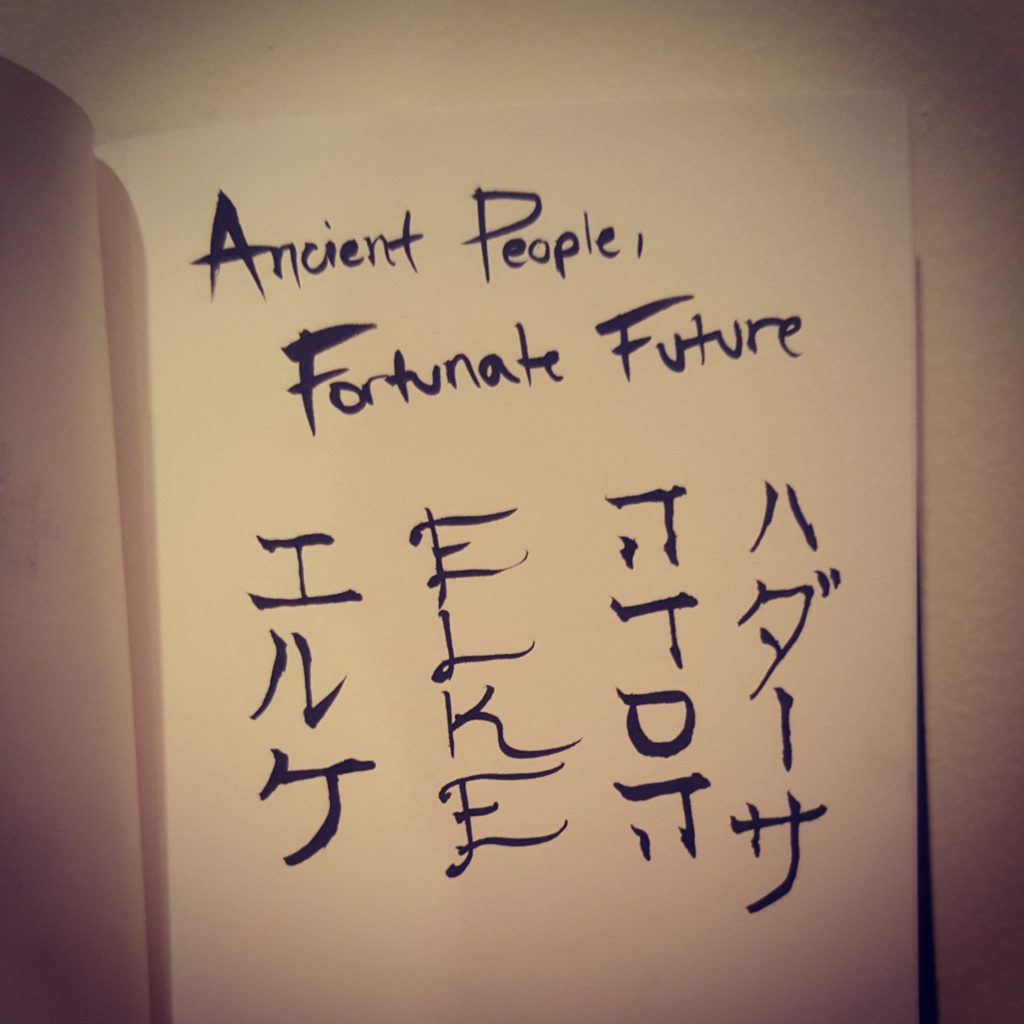 Ancient People,
Fortunate Future
エルケ
ELKE
הדסה
ハダーサ